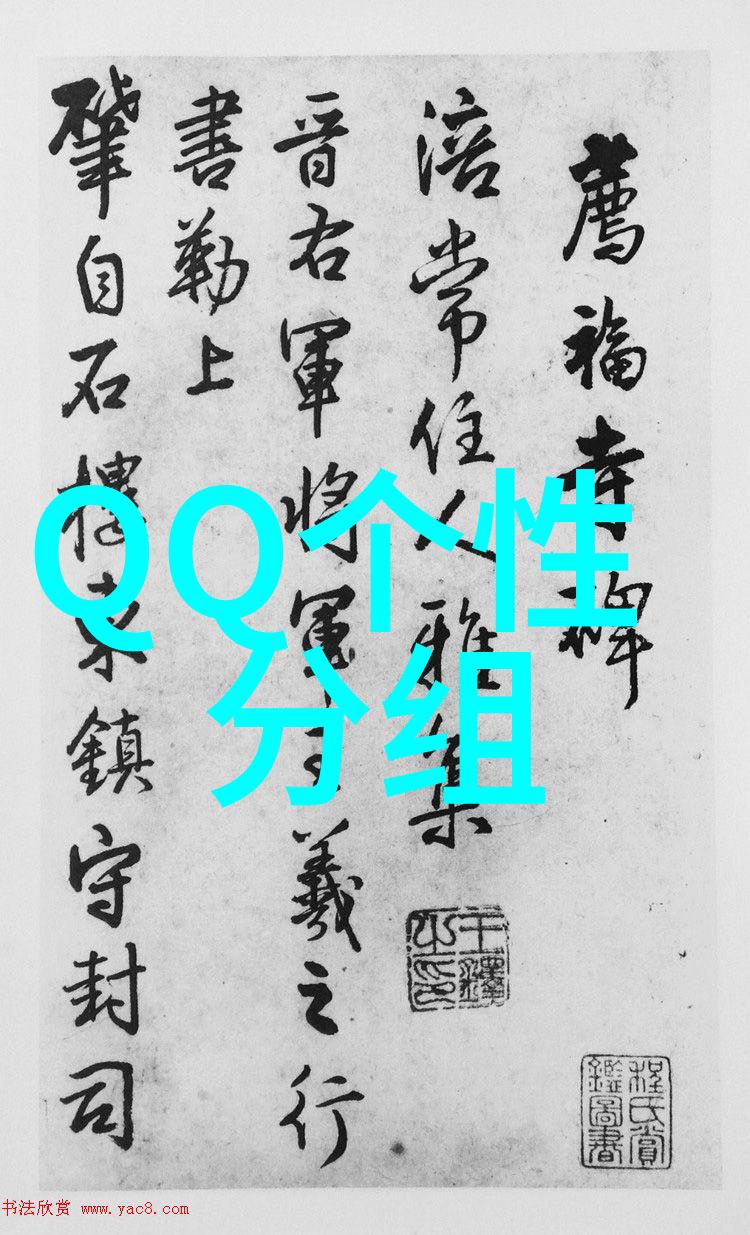 薦福寺碑
涪常住人雅集
晋右軍將軍王羲之行
書勒上
肇自石樓鎮守封司
QQ个性
分组
王鐸之印
程氏賞鑑圖書
书法欣赏 www.yac8.com